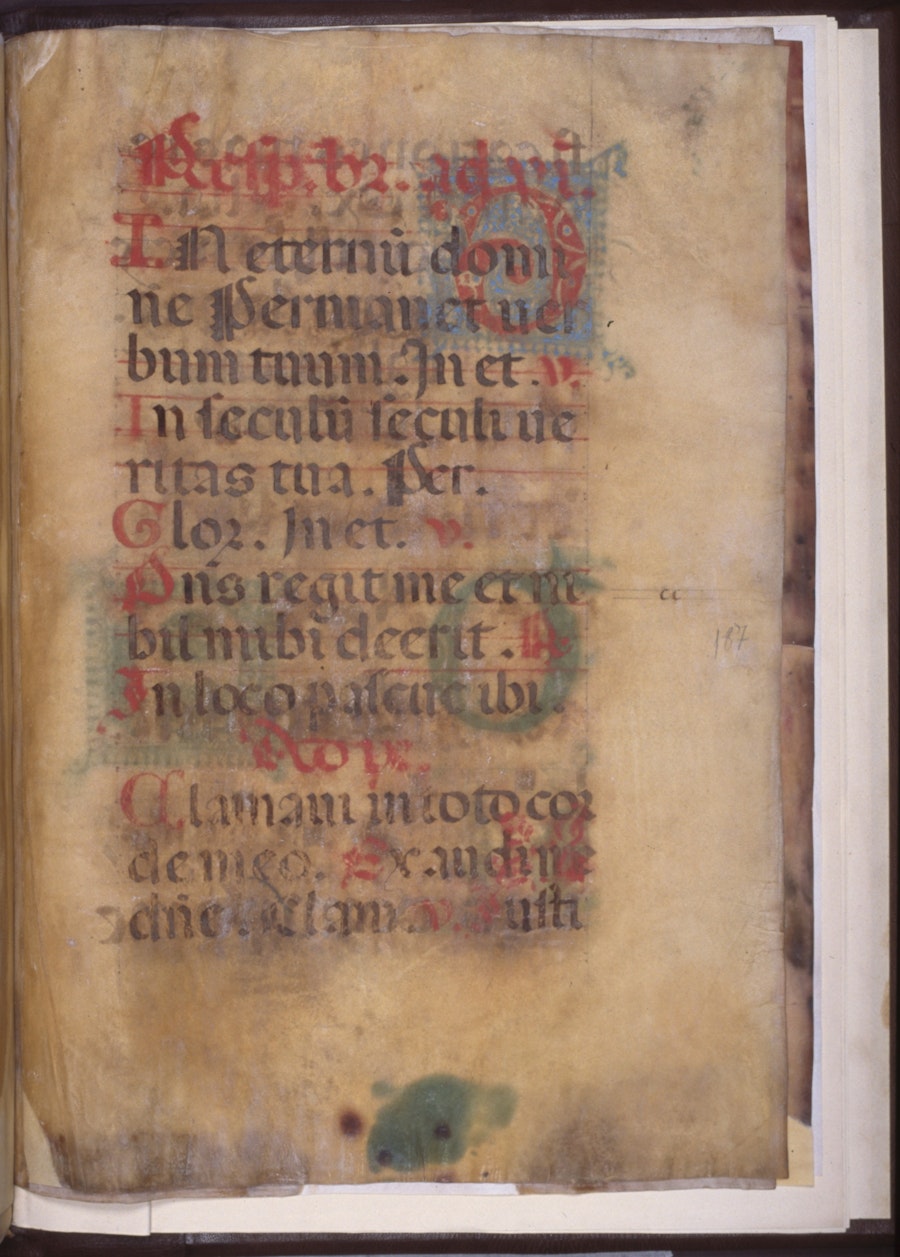 Resp. br. ad vi.
In eternū domi
ne Permanet uer
bum tuum. In et. v.
In seculū seculi ue
ritas tua. Per.
Glor. In et. v.
Dn̄s regit me et ni
hil mihi deerit. R
In loco pascue ibi.
Ad ix.
Clamaui in toto cor
de meo. Exaudi me
dn̄e. Clam. v. Iusti
cc
187